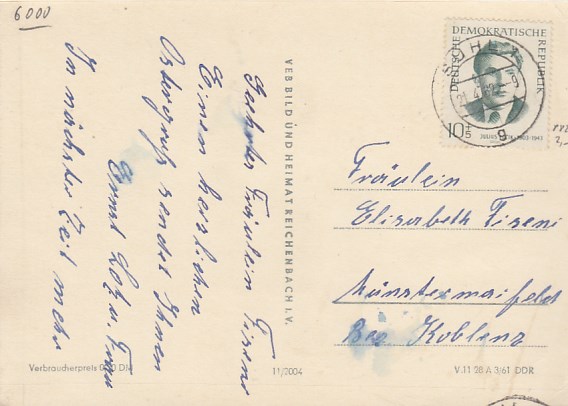 6000
Geehrtes Fräulein Fiseni
Einen herzlichen
Ostergruß sendet Ihnen
Ernst u. Frau
In nächster Zeit mehr
VEB BILD UND HEIMAT REICHENBACH I. V.
DEUTSCHE DEMOKRATISCHE REPUBLIK
SUHL
21.4.62
g
10+5
1903-1943
Fräulein
Elisabeth Fiseni
Münstermaifeld
Bez Koblenz
Verbraucherpreis 0,20 DM
11/2004
V 11 28 A 3/61 DDR